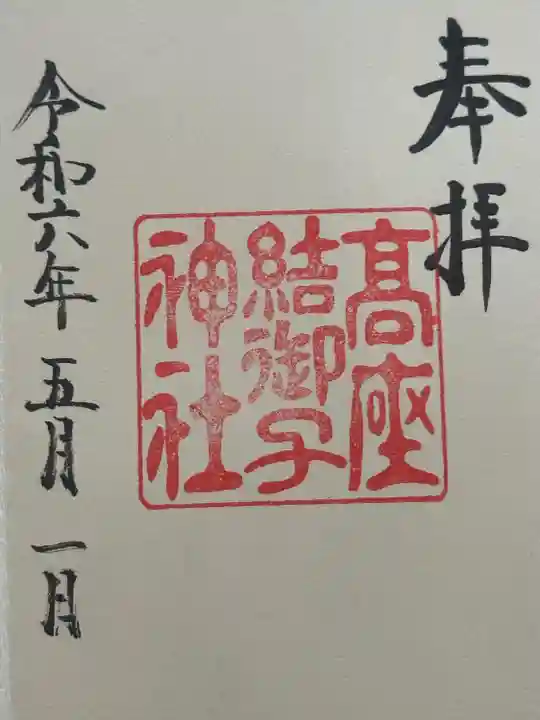 奉拝
高座
結御子
神社
令和六年五月一日